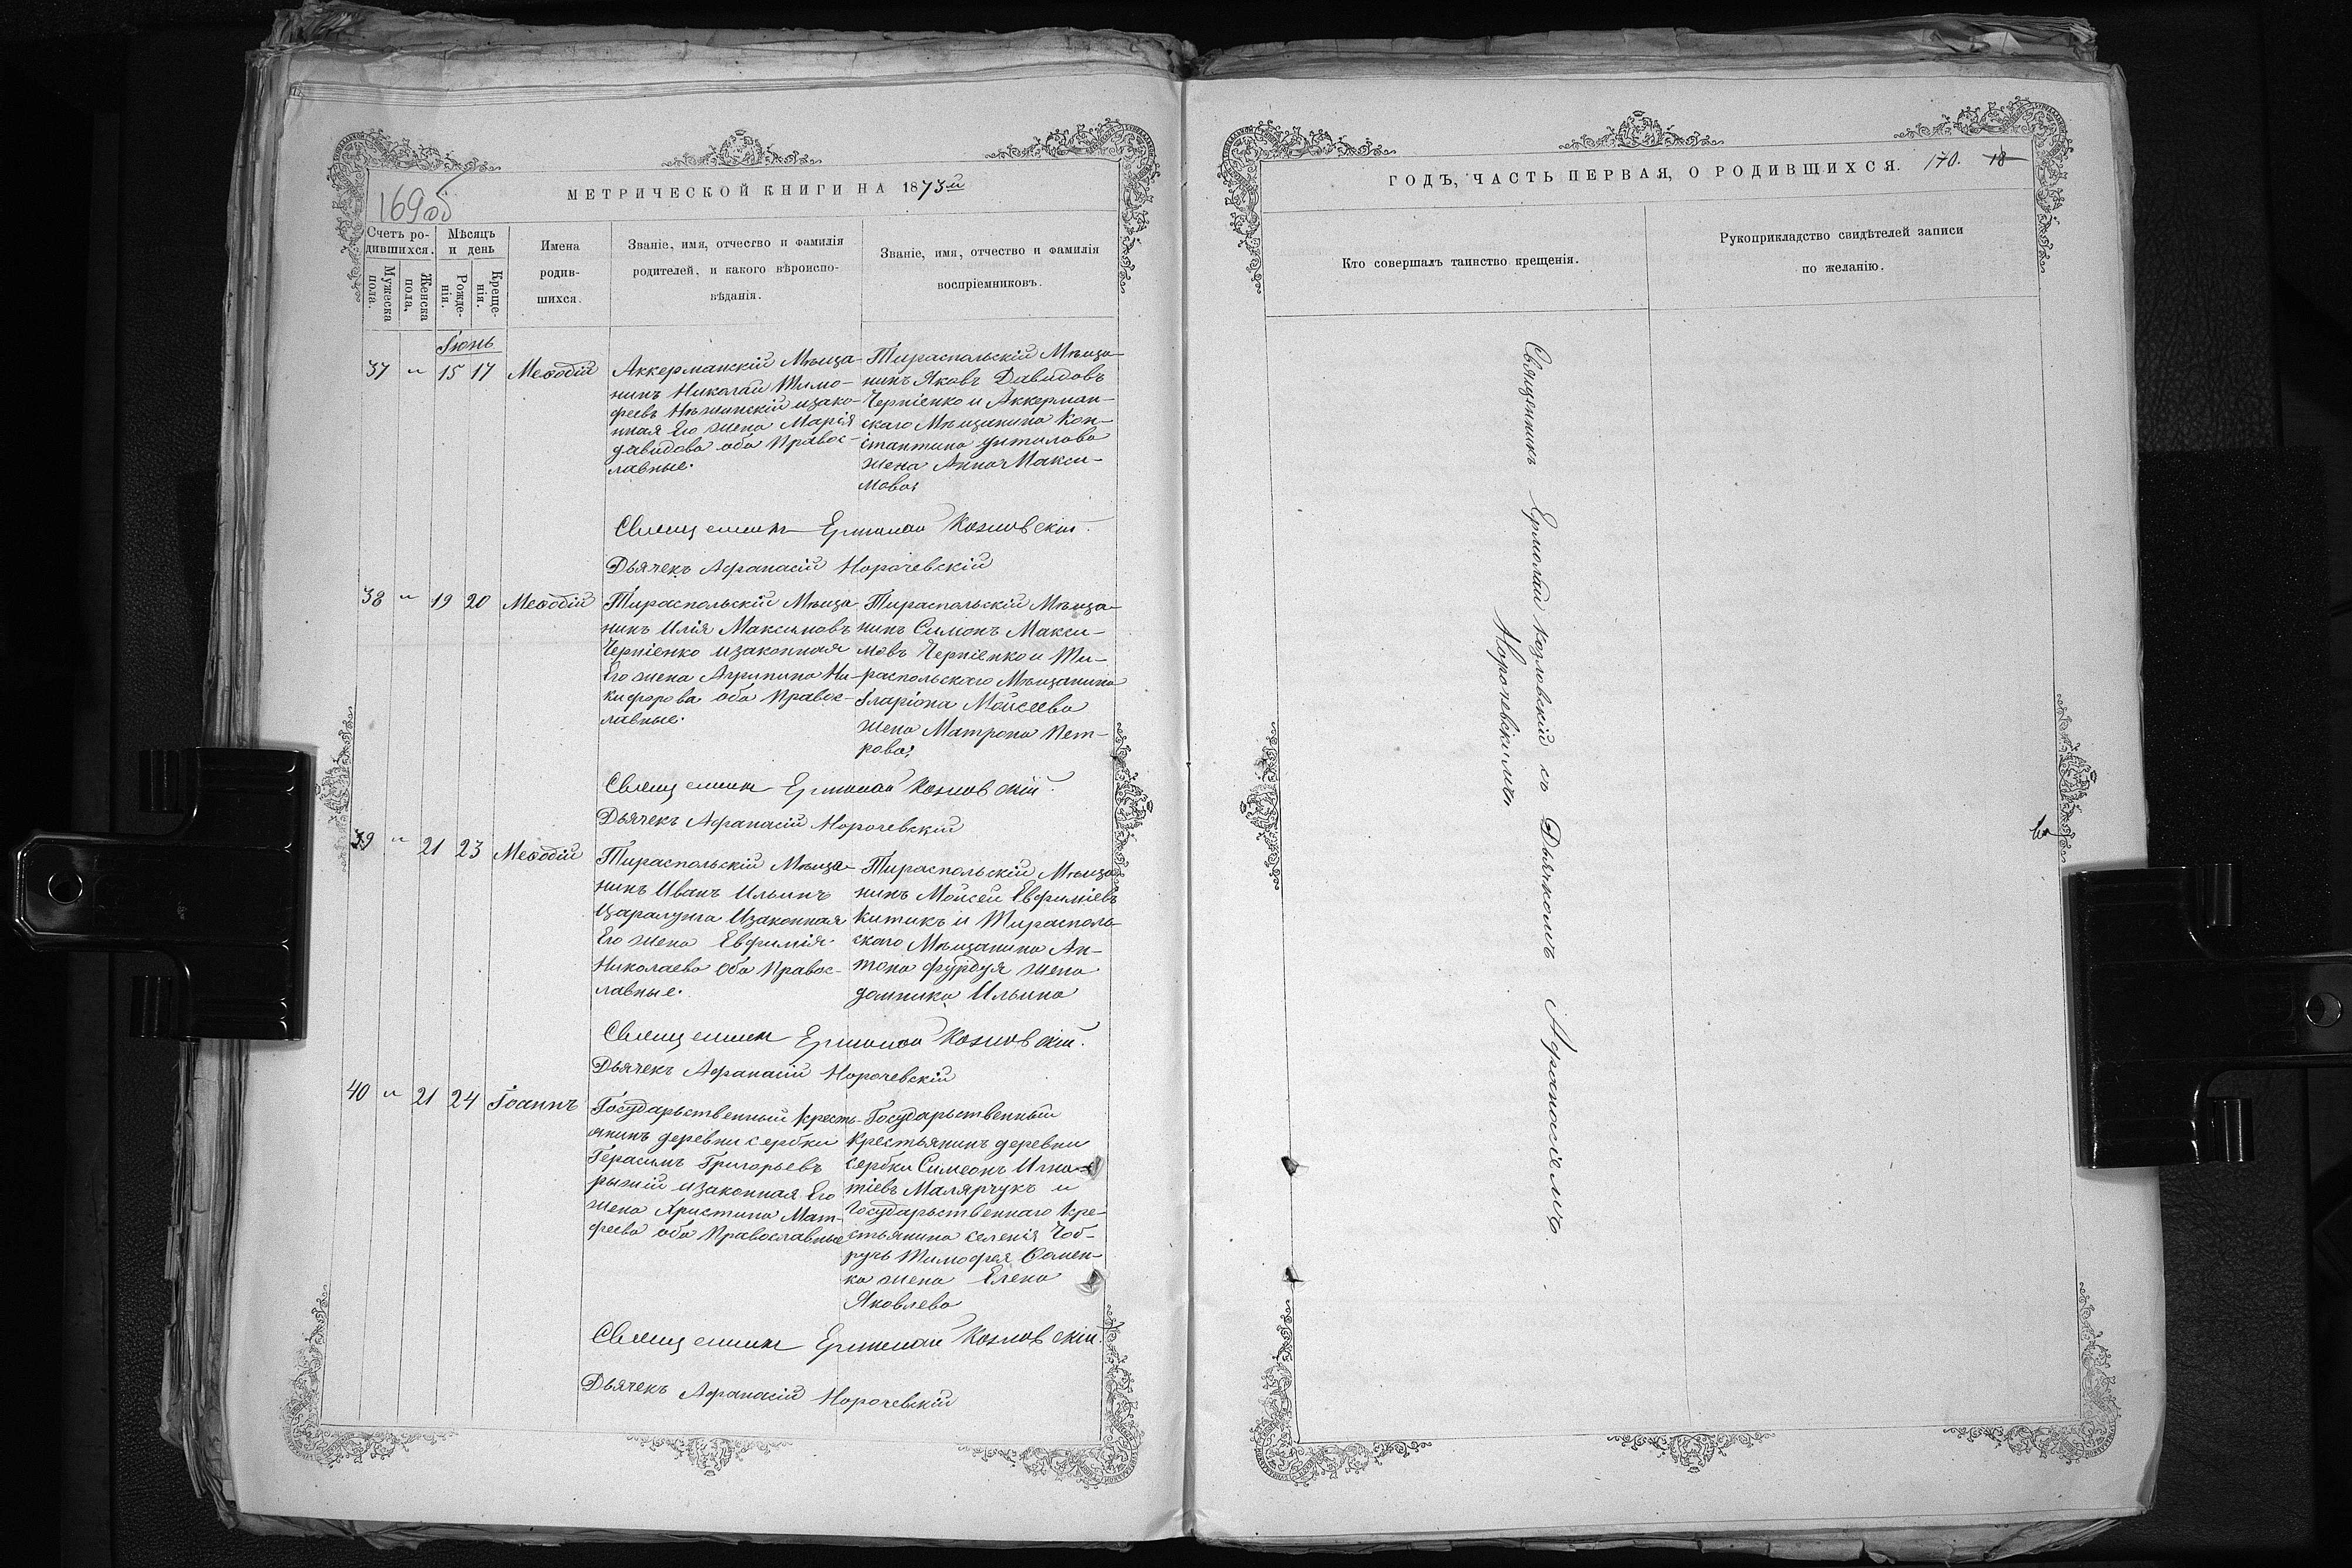 169об
МЕТРИЧЕСКОЙ КНИГИ НА 1873й
Счетъ ро-
дившихся.
Мужеска
пола.
Женска
пола.
Мѣсяцъ
и день
Рожде-
нія.
Креще-
нія.
Имена
родив-
шихся.
Званіе, имя, отчество и фамилія
родителей, и какого вѣроиспо-
вѣданія.
Званіе, имя, отчество и фамилія
воспріемниковъ.
Іюнь
37 " 15 17 Меѳодій
Аккерманскій Мѣща-
нинъ Николай Тимо-
феевъ Нѣжинскій изако-
нная Его жена Марія
давидова оба Правос-
лавные.
Тираспольскій Мѣща-
нинъ Яковъ Давидовъ
Черніенко и Аккерман-
скаго Мѣщанина Кон-
стантина
жена Анна Макси-
мова;
Священникъ Ермолай Козловскій.
Дьячекъ Афанасій Норочевскій
38 " 19 20 Меѳодій
Тираспольскій Мѣща
нинъ Илія Максимовъ
Черніенко изаконная
Его жена Агрипина Ни-
кифорова оба Правос-
лавные.
Тираспольскій Мѣща-
нинъ Симонъ Макси-
мовъ Черніенко и Ти-
распольскаго Мѣщанина
Іларіона Мойсеева
жена Матрона Пет-
рова;
Священникъ Ермолай Козловскій.
Дьячекъ Афанасій Норочевскій
39 " 21 23 Меѳодій
Тираспольскій Мѣща-
нинъ Иванъ Ильинъ
Царалунга Изаконная
Его жена Евфимія
Николаева Оба Правос-
лавные.
Тираспольскій Мѣща
нинъ Мойсей Евфиміевъ
Китикъ и Тирасполь-
скаго Мѣщанина Ан-
тона Фурдуя жена
домника Ильина
Священникъ Ермолай Козловскій.
Дьячекъ Афанасій Норочевскій
40 " 21 24 Іоаннъ
Государьственный Кресть-
янинъ деревни сербки
Герасимъ Григорьевъ
рыжій изаконная Его
жена Христина Мат-
феева оба Православные
Государьственный
Крестьянинъ деревни
сербки Симеонъ Игна-
тіевъ Малярчукъ и
Государьственнаго Кре-
стьянина селенія Чоб-
ручь Тимофея
ка жена Елена
Яковлева
Священникъ Ермолай Козловскій.
Дьячекъ Афанасій Норочевскій
ГОДЪ, ЧАСТЬ ПЕРВАЯ, О РОДИВШИХСЯ. 170. 18
Кто совершалъ таинство крещенія.
Рукоприкладство свидѣтелей записи
по желанію.
Священникъ Ермолай Козловскій съ Дьячкомъ Афанасіемъ
Норочевскимъ